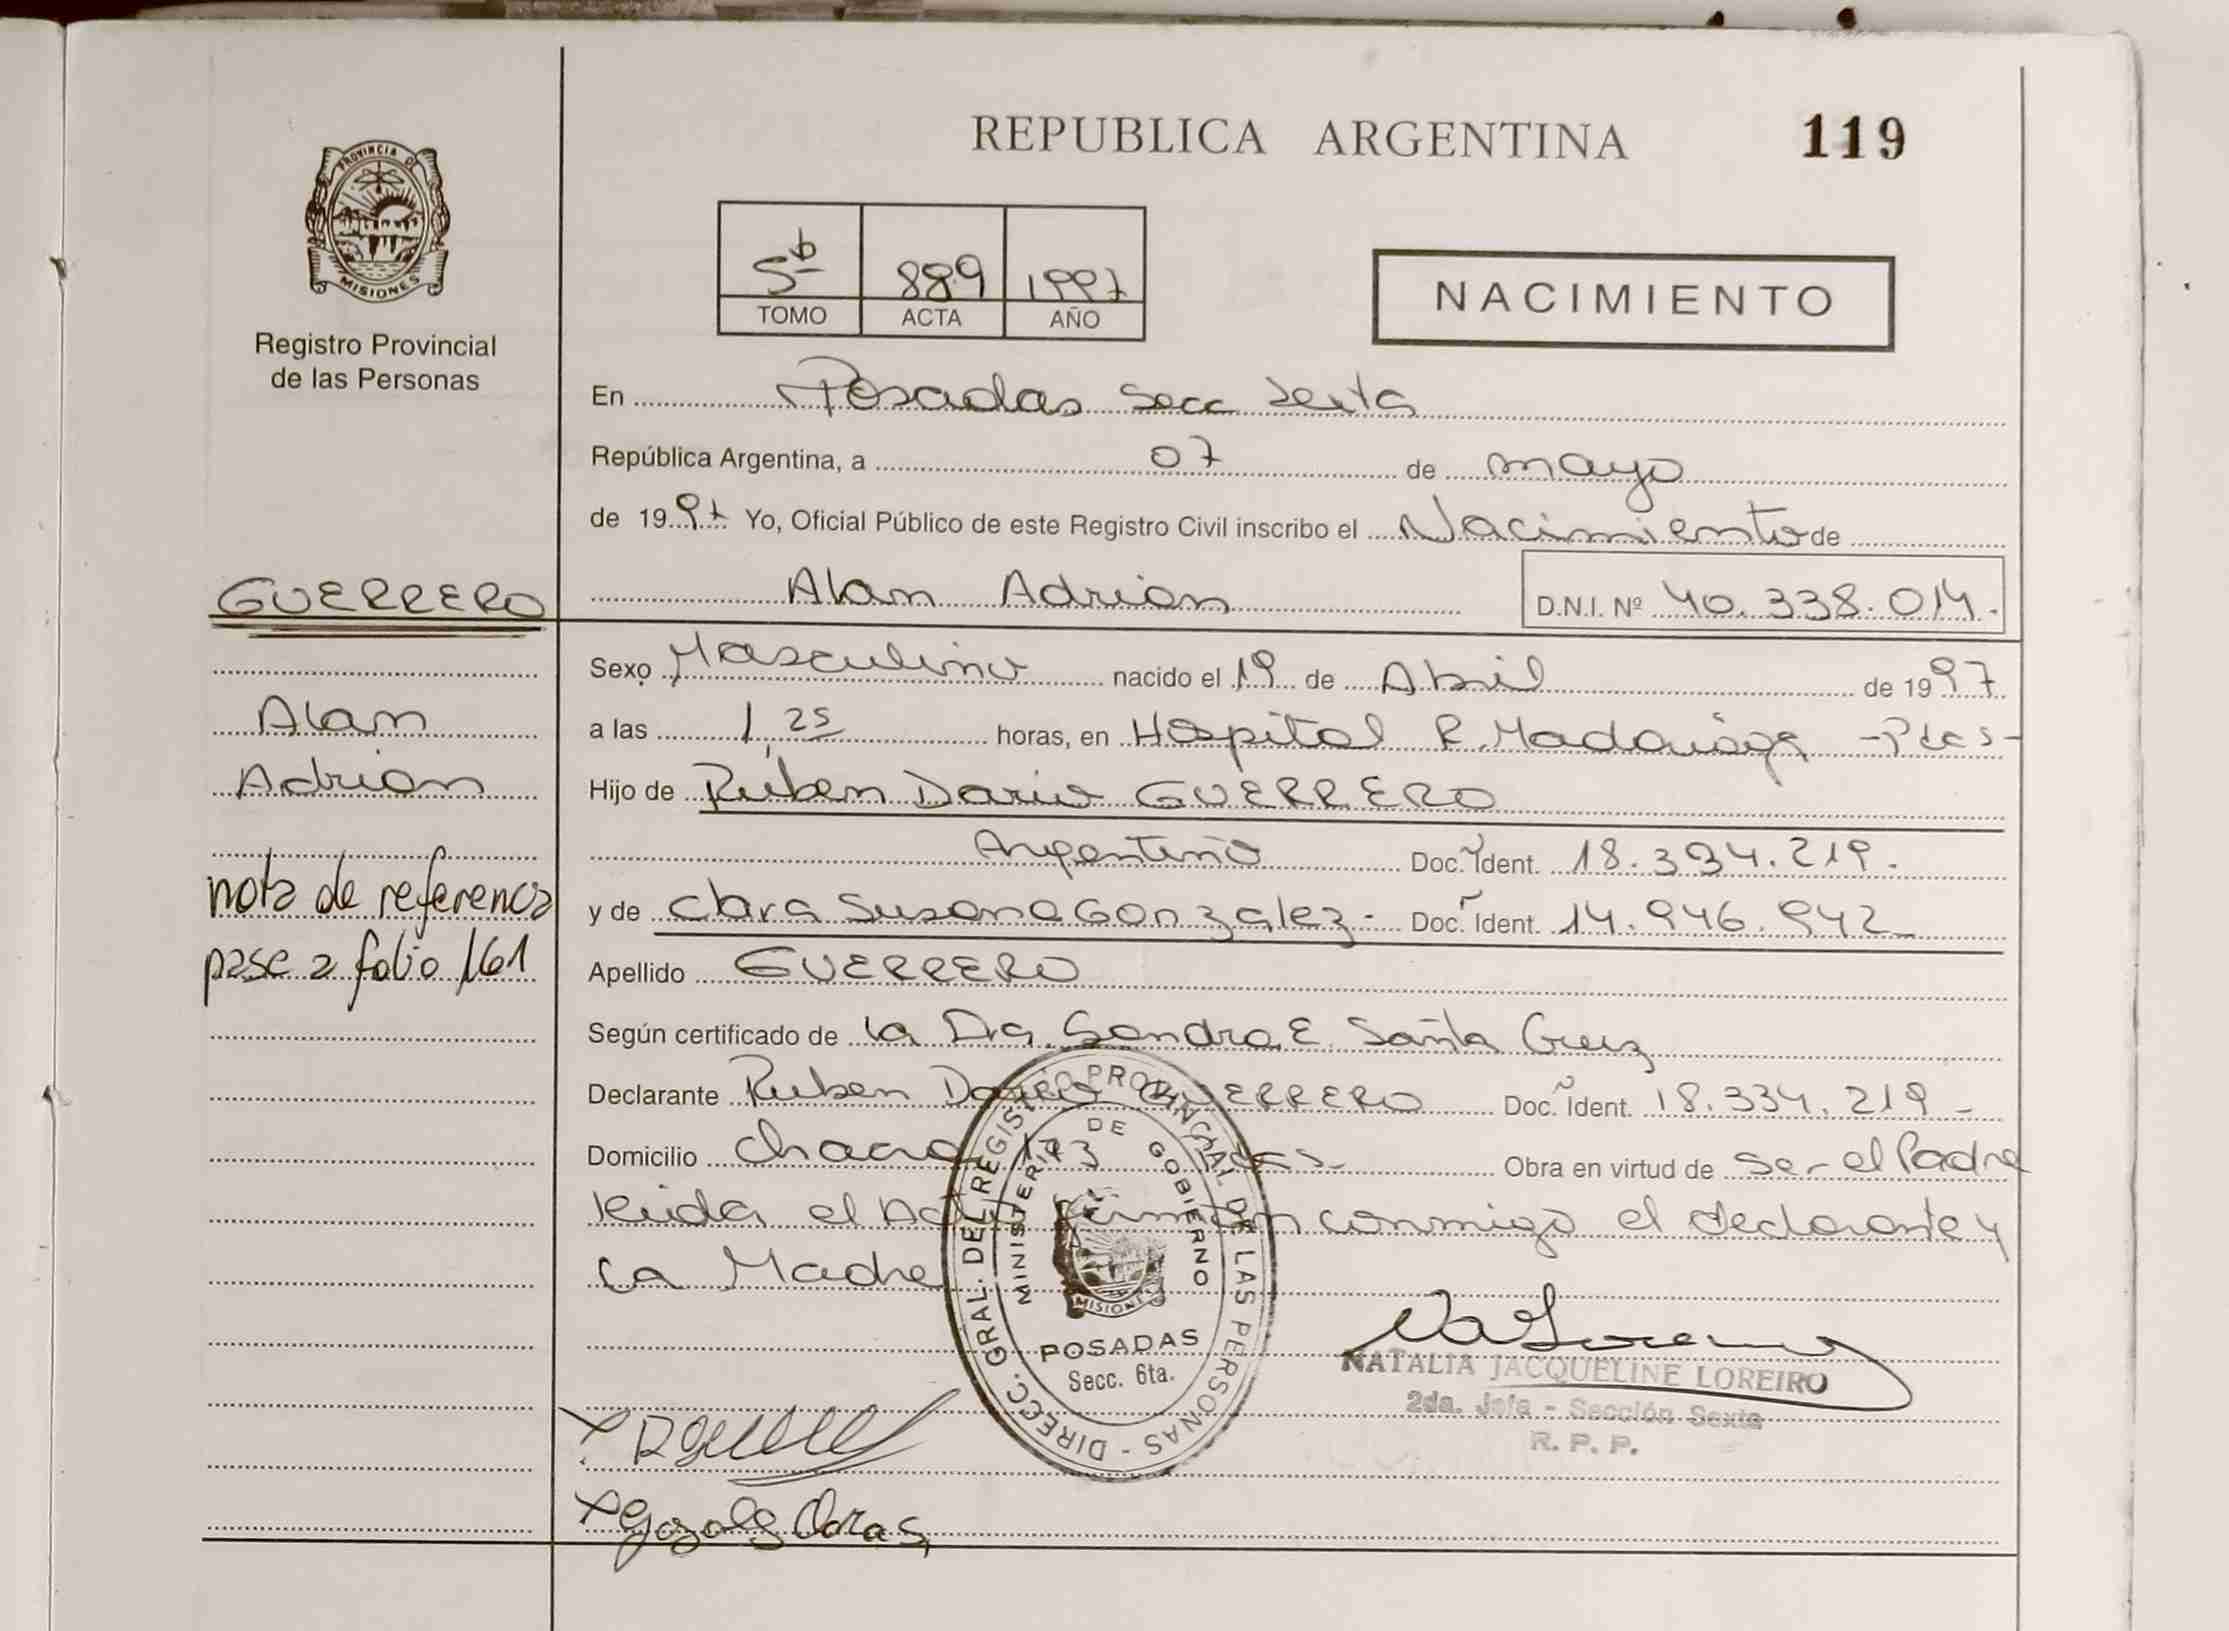 REPUBLICA ARGENTINA 119
PROVINCIA DE
MISIONES
Registro Provincial
de las Personas
5b 889 1997
TOMO ACTA AÑO
NACIMIENTO
En Posadas Secc Sexta
República Argentina, a 07 de mayo
de 1997 Yo, Oficial Público de este Registro Civil inscribo el Nacimiento de
GUERRERO
Alan Adrian D.N.I. Nº 40.338.014.
Sexo Masculino nacido el 19 de Abril de 1997
Alan
a las 1,25 horas, en Hospital R. Madariaga - Pdas -
Adrian
Hijo de Rúben Dario GUERRERO
Argentino Doc. Ident. 18.334.219.
nota de referencia
y de Clara Susana Gonzalez - Doc. Ident. 14.946.942
pase a folio 161
Apellido GUERRERO
Según certificado de la Dra. Sandra E. Santa Cruz
Declarante Ruben Dario GUERRERO Doc. Ident. 18.334.219 -
Domicilio Chacra Obra en virtud de ser el Padre
leida el Acta firman conmigo el declarante y
la Madre
DIRECC. GRAL. DEL REGISTRO PROVINCIAL DE LAS PERSONAS -
MINISTERIO DE GOBIERNO
MISIONES
POSADAS
Secc. 6ta.
NATALIA JACQUELINE LOREIRO
2da. Jefa - Sección Sexta
R. P. P.